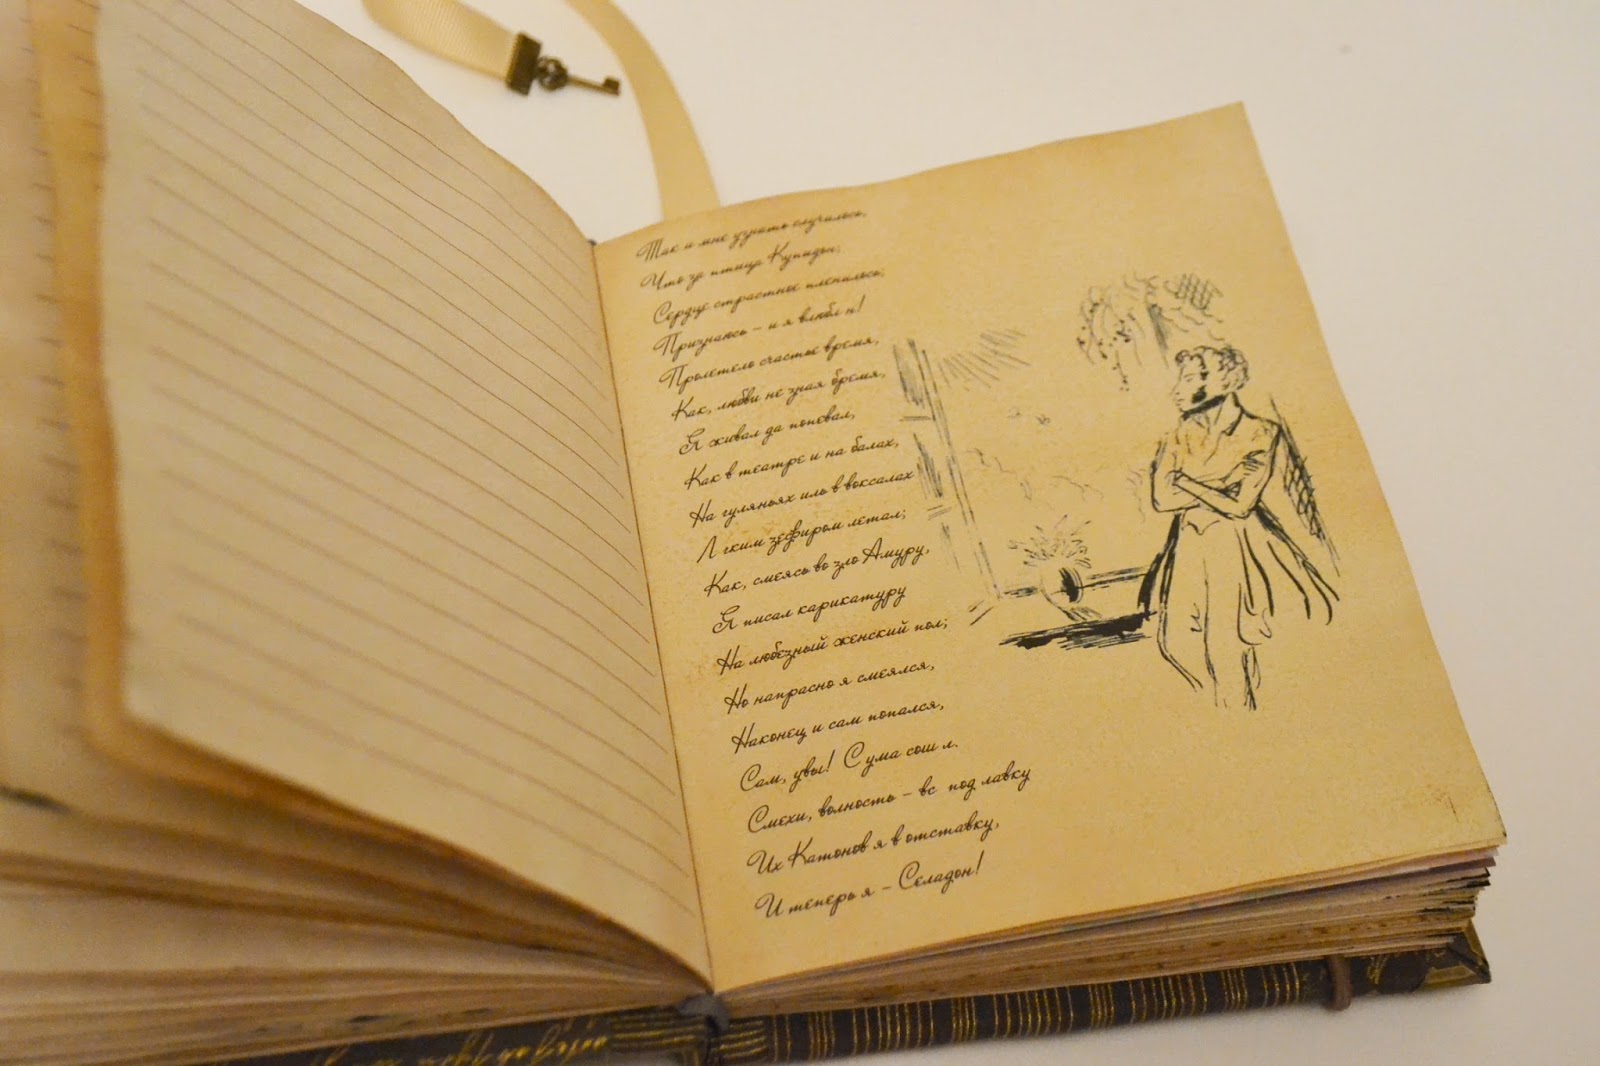 Так и мне узнать случилось,
Что за птица Купидон;
Сердце страстное пленилось;
Признаюсь – и я влюбл н!
Пролетело счастье время,
Как, любви не зная бремя,
Я живал да попевал,
Как в театре и на балах,
На гуляньях иль в воксалах
Л гким зефиром летал;
Как, смеясь во зло Амуру,
Я писал карикатуру
На любезный женский пол;
Но напрасно я смеялся,
Наконец и сам попался,
Сам, увы! С ума сош л.
Смехи, вольность – вс под лавку
Из Катонов я в отставку,
И теперь я – Селадон!